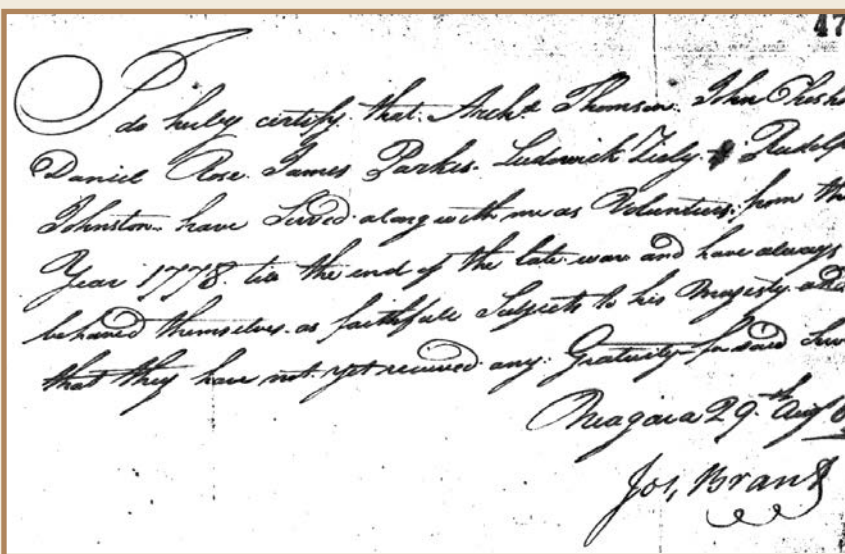 47
I
do hereby certify that: Archd. Thomson. John Chesho
Daniel Rose. James Parkes. Ludowick Ziely & Rudolp
Johnston. have Served along with me as Volunteers; from the
Year 1778. till the end of the late war and have always
behaved themselves as faithfull Subjects to his Magesty. and
that they have not yet received any: Gratuity for said Serv
Niagara 29th. Augt
Jos, Brant